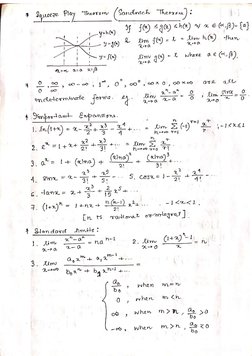 * Squeeze Play Theorem (Sandwich Theorem):
If f(x) ≤ g(x) ≤ h(x) ∀ x ∈ (α, β) - {a}
& lim x→a f(x) = l = lim x→a h(x) then
lim x→a g(x) = l where a ∈ (α, β)
y=h(x)
y=g(x)
y=f(x)
x=α x=a x=β
* 0/0, ∞/∞, ∞-∞, 1^∞, 0°, ∞°, ∞×0, are all
indeterminate forms. eg
* Important Expansions:
1. ln(1+x) = x - x²/2 + x³/3 - x⁴/4 + ... -1<x<1
2. e^x = 1+x+ x²/2! + x³/3! + ...
3. a^x = 1 + (xlna) + (xlna)²/2! + (xlna)³/3! ...
4. sinx = x - x³/3! + x⁵/5! ... 5. cosx = 1 - x²/2! + x⁴/4!
6. tanx = x + x³/3 + 2/15 x⁵ ...
7. (1+x)^n = 1+nx+ n(n-1)/2! x² ... -1<x<1.
[n is rational or integer]
* Standard limits:
1. lim x→a (x^n - a^n)/(x-a) = na^(n-1) 2. lim x→0 ((1+x)^n - 1)/x = n
a₀/b₀, when m=n
0, when m<n
∞, when m>n, a₀/b₀ >0
-∞, when m>n, a₀/b₀ <0